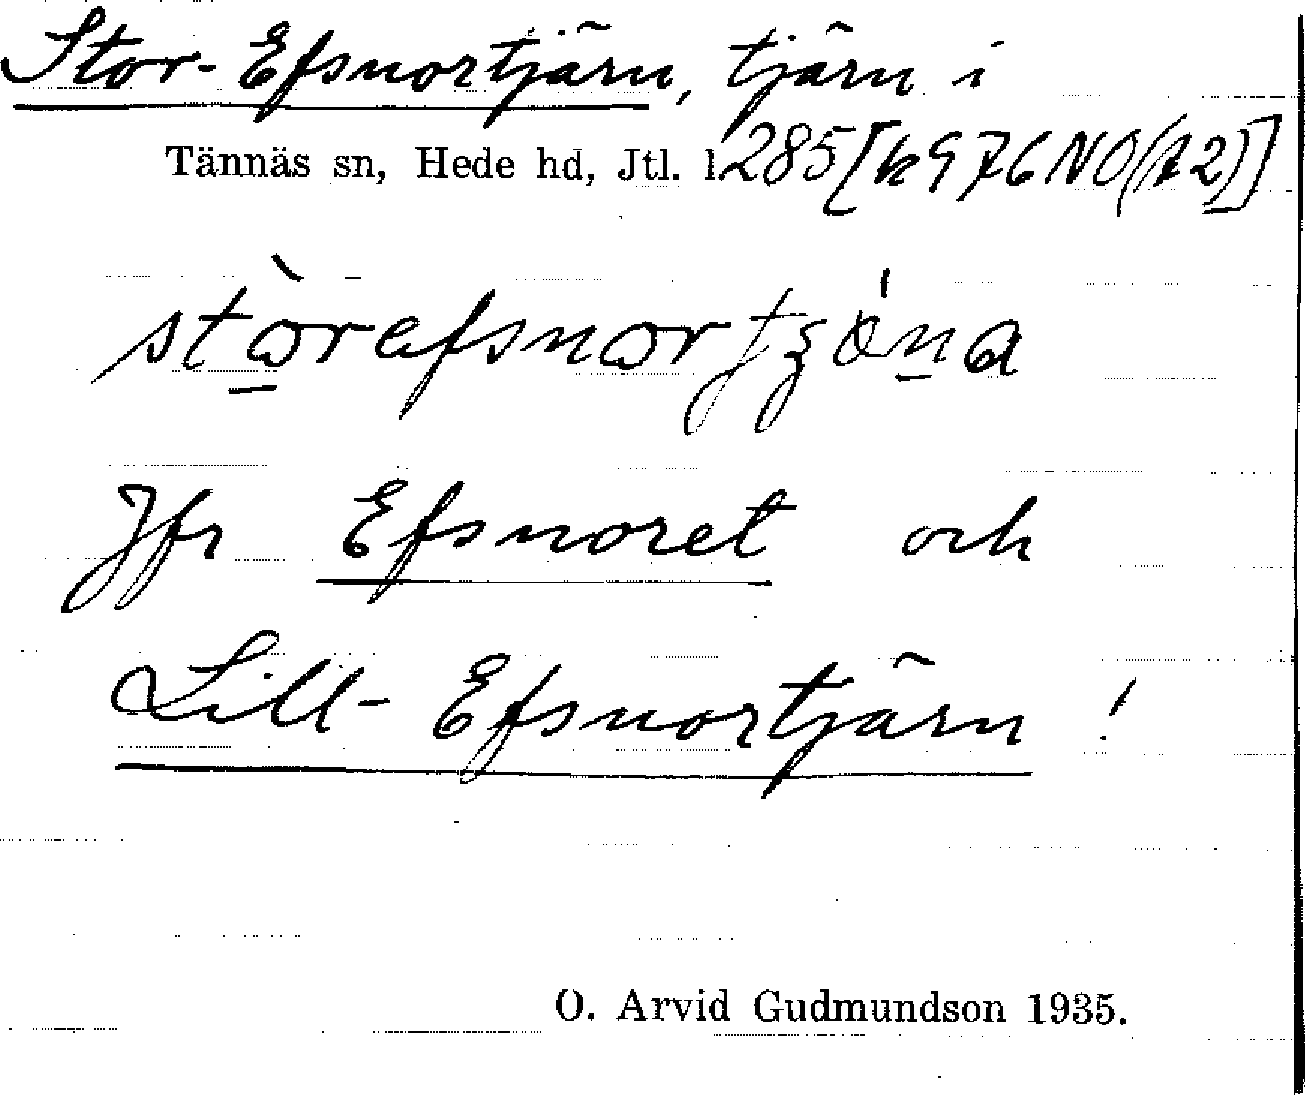 Stor-Efsnortjärn, tjärn i
Tännäs sn, Hede hd, Jtl. l. 285 [k 976 NO (A2)]
Jfr Efsnoret och
Lill-Efsnortjärn!
O. Arvid Gudmundson 1935.